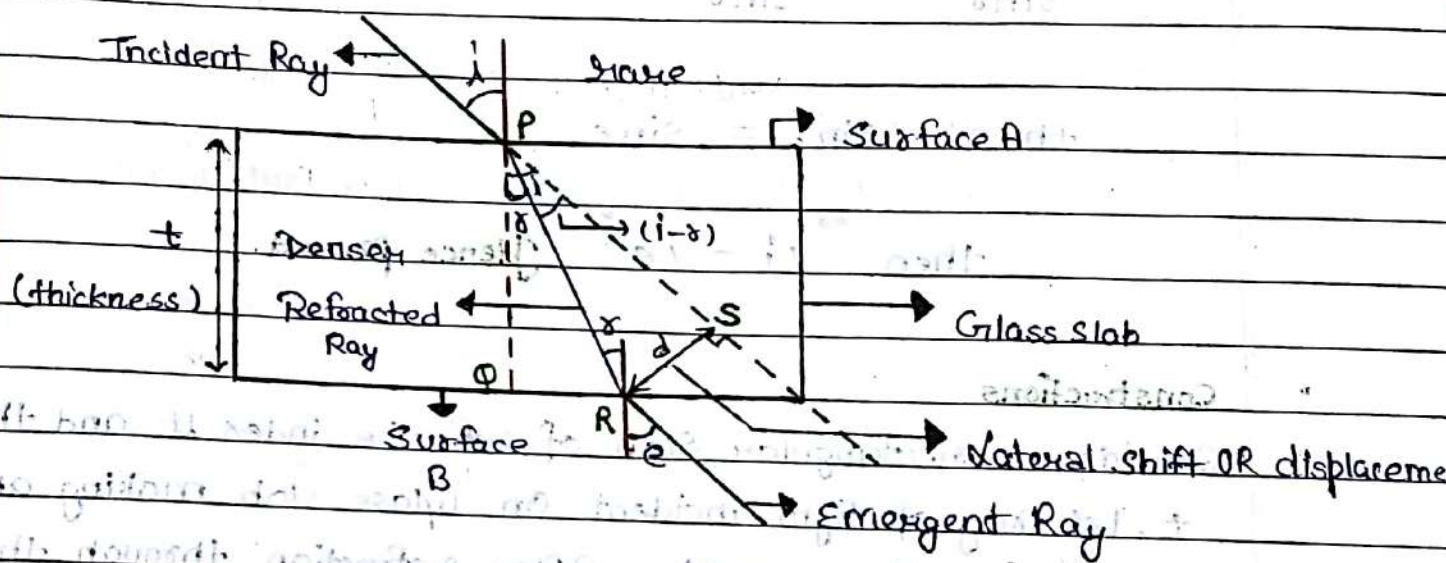 Incident Ray
i
rare
P
Surface A
i
r
(i-r)
t
(thickness)
Denser
Refracted
Ray
r
S
d
Glass slab
Q
R
Surface
B
e
Lateral shift OR displaceme
Emergent Ray